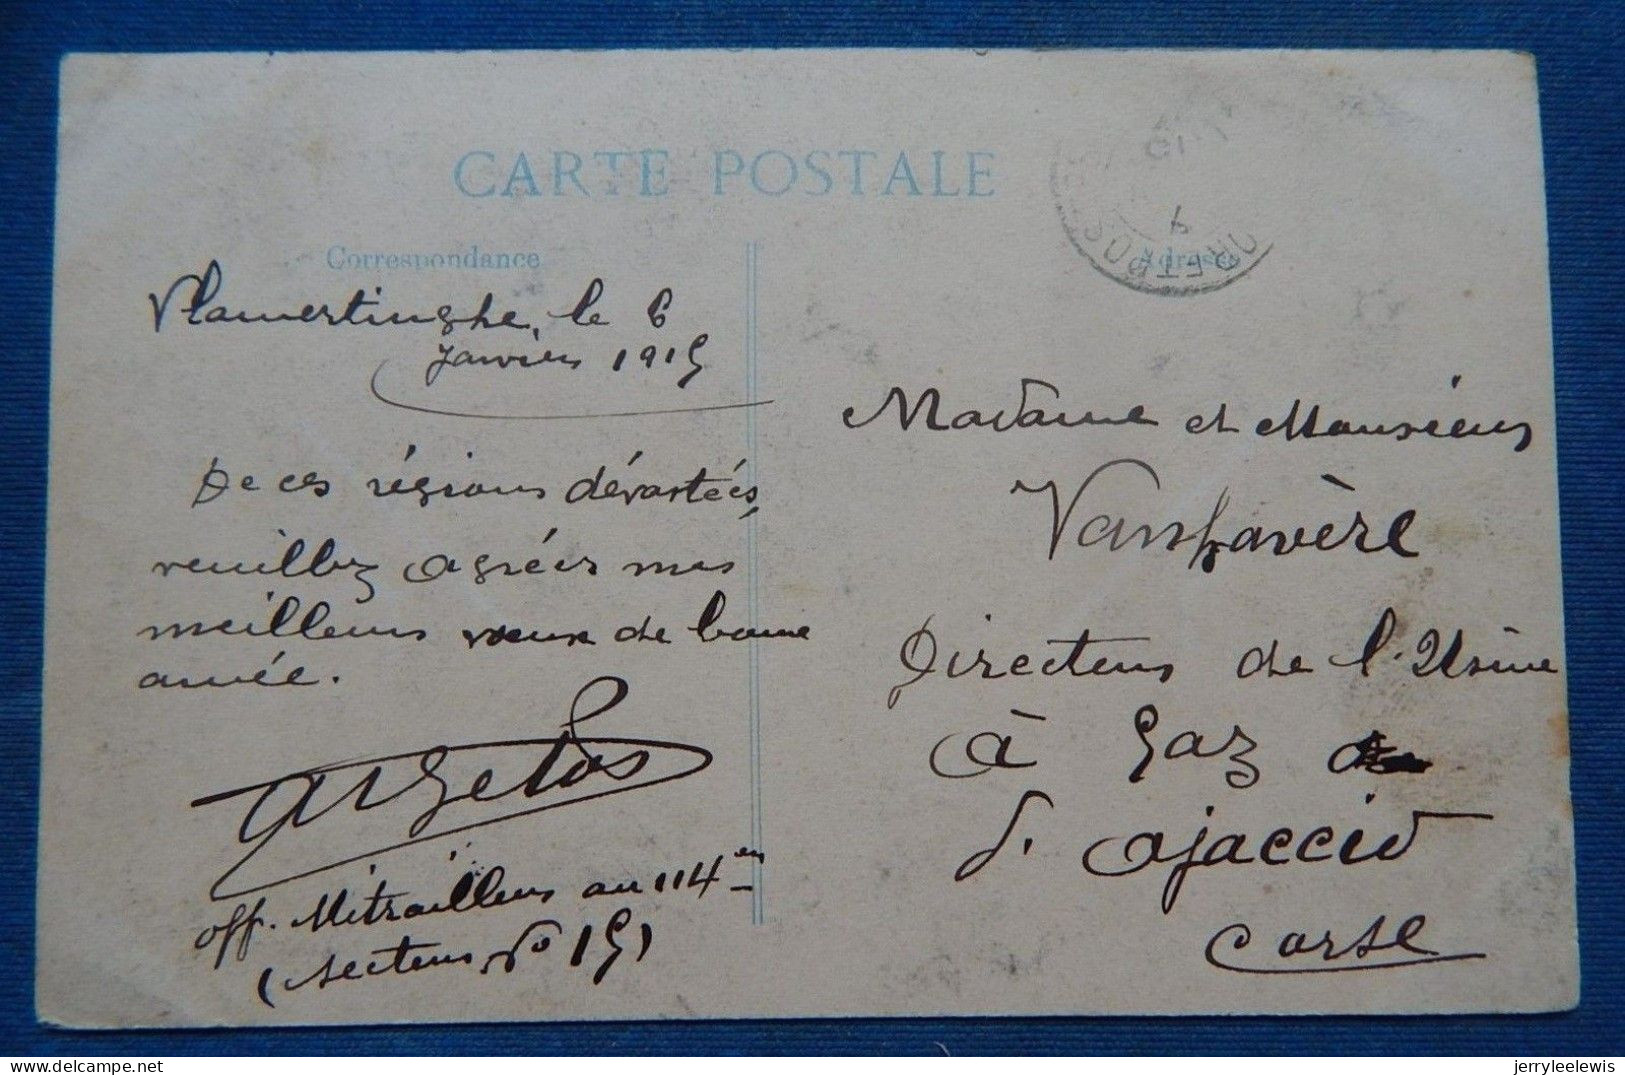 CARTE POSTALE
Correspondance
Vlamertinghe, le 6
Janvier 1915
De ces régions dévastées,
veuillez agréer mes
meilleurs vœux de bonne
année.
off. Mitrailleur au 114en
(secteur No 15)
Adresse
Madame et Monsieur
Directeur de l'Usine
à Gaz de
d'ajaccio
Corse
jerryleelewis